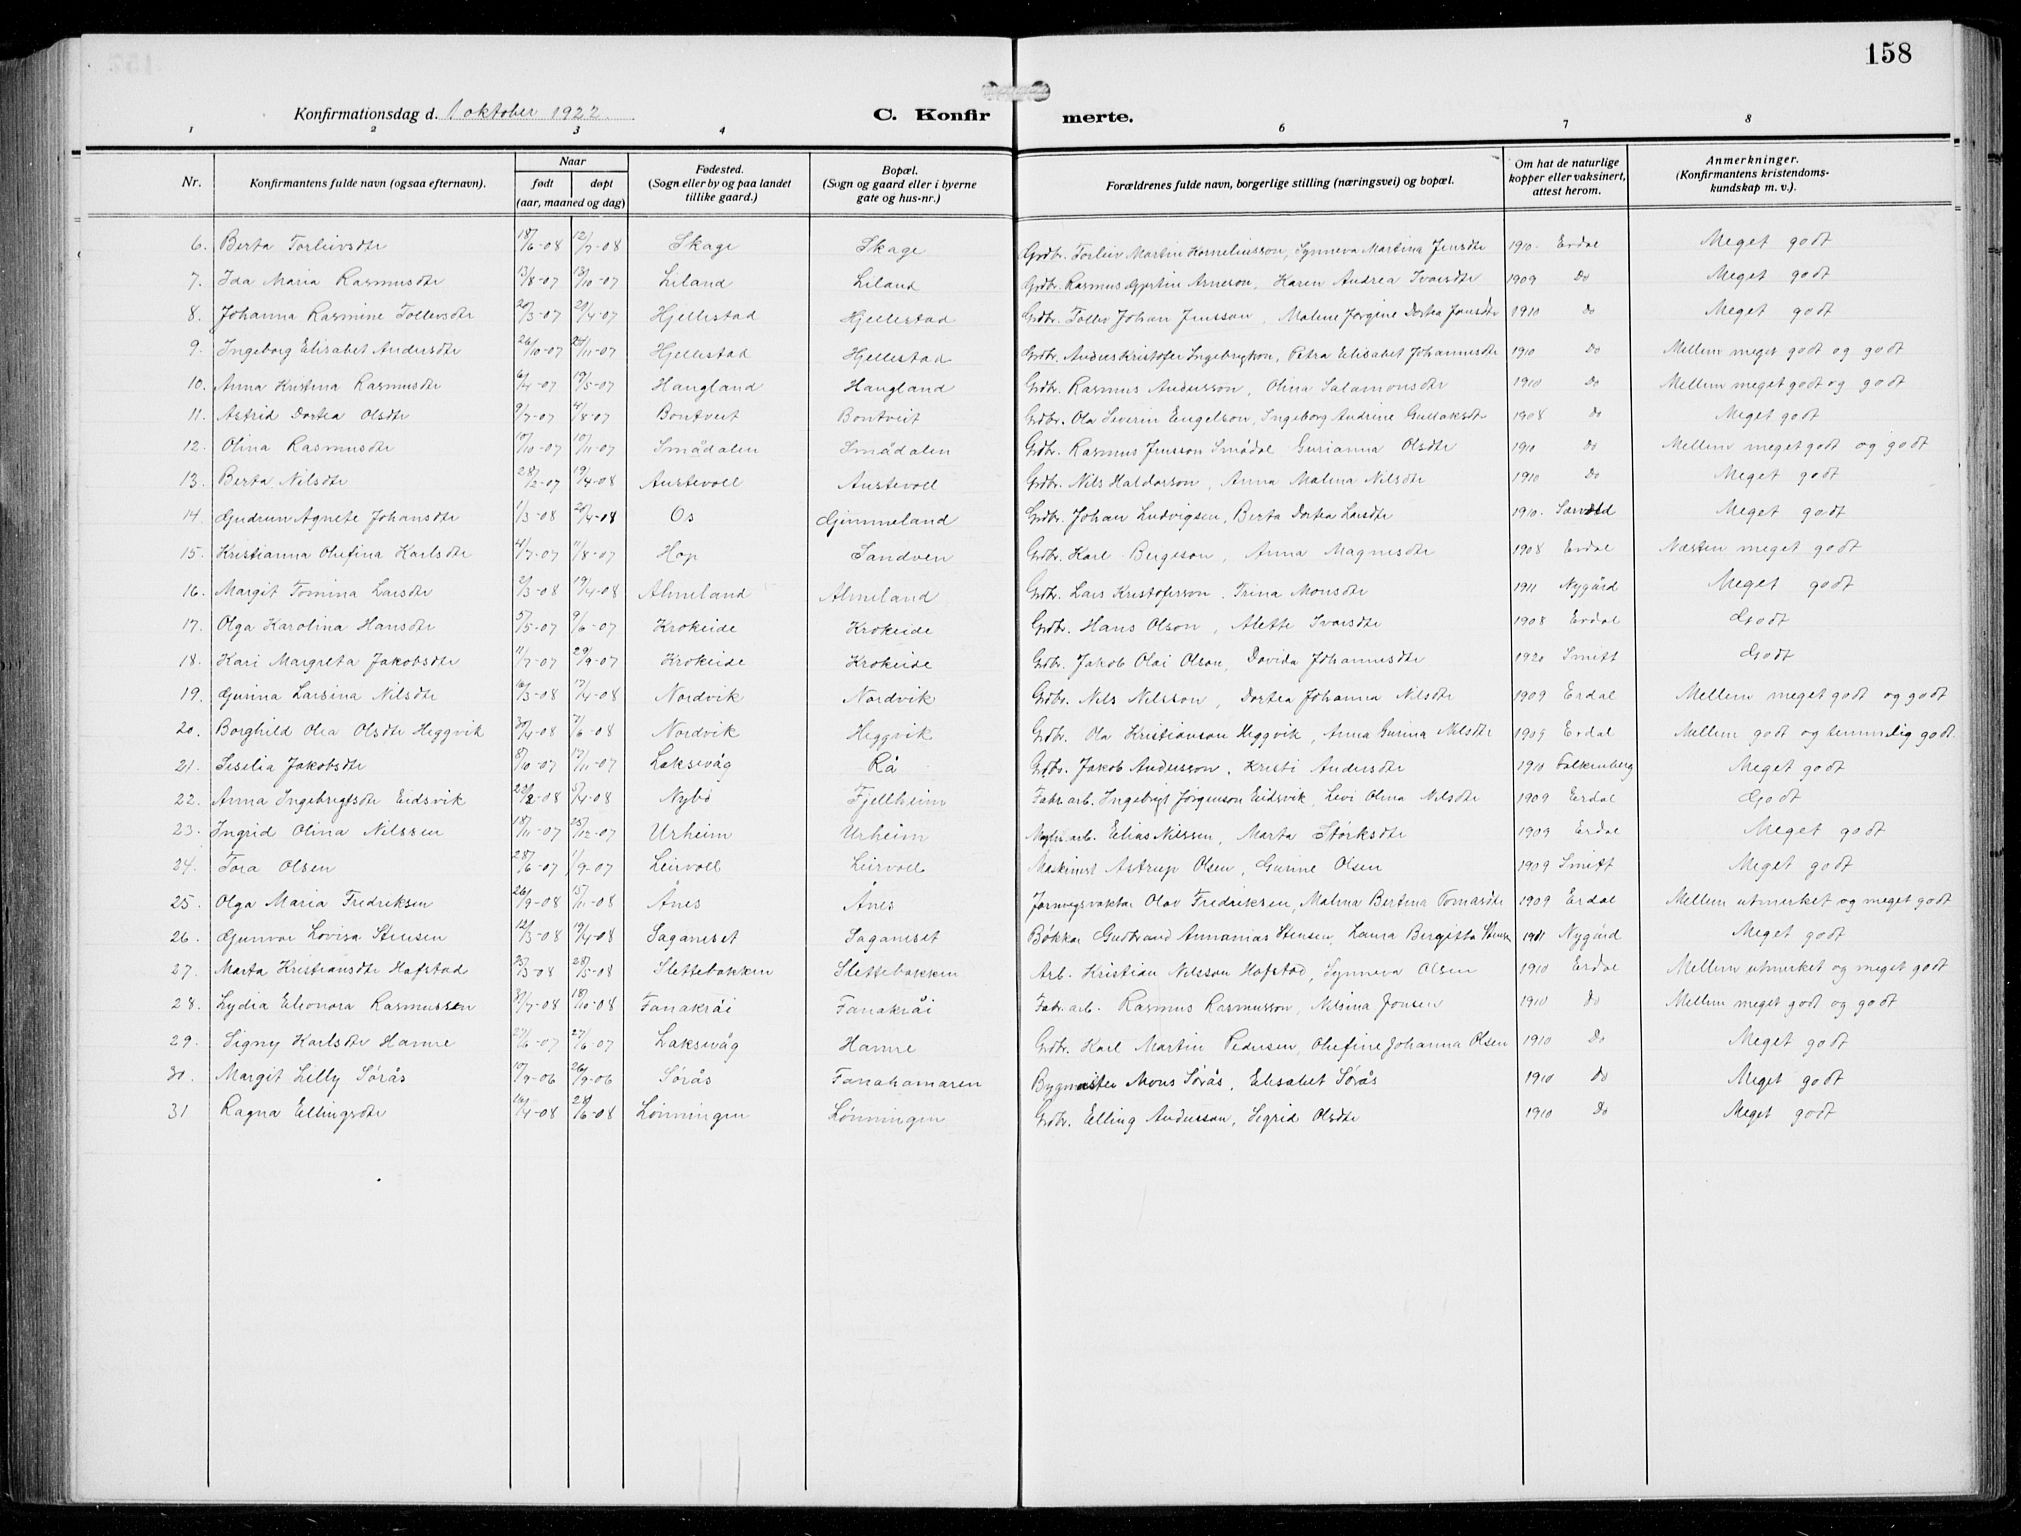 158
Konfirmationsdag d. 1 oktober 1922. C. Konfir merte.
1 2 3 4 6 7 8
Nr. Konfirmantens fulde navn (ogsaa efternavn). Naar født døpt (aar, maaned og dag) Fødested. (Sogn eller by og paa landet tillike gaard.) Bopæl. (Sogn og gaard eller i byerne gate og hus-nr.) Forældrenes fulde navn, borgerlige stilling (næringsvei) og bopæl. Om hat de naturlige kopper eller vaksinert, attest herom. Anmerkninger. (Konfirmantens kristendoms- kundskap m. v.).
6. Berta Torleivsdtr 18/6-08 12/7-08 Skage Skage Grdbr. Torleiv Martin Korneliusson, Synneva Martina Jensdtr 1910 Erdal Meget godt
7. Ida Maria Rasmusdtr 13/8-07 13/10-07 Liland Liland Grdbr. Rasmus Gjertin Arneson, Karen Andrea Ivarsdtr 1909 Do Meget godt
8. Johanna Rasmine Tollevsdtr 20/3-07 29/4-07 Hjellestad Hjellestad Grdbr. Tollev Johan Jensson, Malene Jørgine Dortea Jonsdtr 1910 Do Meget godt
9. Ingeborg Elisabet Andersdtr 26/10-07 24/11-07 Hjellestad Hjellestad Grdbr. Anders Kristofer Ingebrigtson, Petra Elisabet Johannesdtr 1910 Do Mellem meget godt og godt
10. Anna Kristina Rasmusdtr 6/4-07 19/5-07 Haugland Haugland Grdbr. Rasmus Andersson, Olina Salamonsdtr 1910 Do Mellem meget godt og godt
11. Astrid Dortea Olsdtr 9/7-07 4/8-07 Bontveit Bontveit Grdbr. Ola Severin Engelson, Ingeborg Andrine Gullaksdtr 1908 Do Meget godt
12. Olina Rasmusdtr 10/10-07 10/11-07 Smådalen Smådalen Grdbr. Rasmus Jensson Smådal Gurianna Olsdtr 1910 Do Mellem meget godt og godt
13. Berta Nilsdtr 28/2-07 19/4-08 Austevoll Austevoll Grdbr. Nils Haldorson, Anna Malena Nilsdtr 1910 Do Meget godt
14. Gudrun Agnete Johansdtr 1/3-08 20/4-08 Os Gjimmeland Grdbr. Johan Ludvigsen, Berta Dortea Larsdtr 1910. Meget godt
15. Kristianna Olufina Karlsdtr 4/7-07 11/8-07 Hop Sandven Grdbr. Karl Bergeson, Anna Magnesdtr 1908 Erdal Næsten meget godt
16. Margit Tomina Larsdtr 2/3-08 19/4-08 Almeland Almeland Grdbr. Lars Kristoferson, Trina Monsdtr 1911 Nygård Meget godt
17. Olga Karolina Hansdtr 5/5-07 9/6-07 Krokeide Krokeide Grdbr. Hans Olson, Alette Ivarsdtr 1908 Erdal Godt
18. Kari Margreta Jakobsdtr 11/7-07 29/9-07 Krokeide Krokeide Grdbr. Jakob Olai Olson, Dovida Johannesdtr 1920 Smitt Godt
19. Gurina Larsina Nilsdtr 16/3-08 17/4-08 Nordvik Nordvik Grdbr. Nils Nilsson, Dortea Johanna Nilsdtr 1909 Erdal Mellem meget godt og godt
20. Borghild Olea Olsdtr Heggvik 30/4-08 7/6-08 Nordvik Heggvik Grdbr. Ola Kristianson Heggvik, Anna Gurina Nilsdtr 1909 Erdal Mellem godt og temmelig godt.
21. Seselia Jakobsdtr 8/10-07 17/11-07 Laksevåg Rå Grdbr. Jakob Andersson, Kristi Andersdtr 1910 Falkenberg Meget godt
22. Anna Ingebrigtsdtr Eidsvik 22/2-08 5/4-08 Nybø Fjellheim Fabr. arb. Ingebrigt Jørgenson Eidsvik, Levi Olena Nilsdtr 1909 Erdal Godt
23. Ingrid Olina Nilssen 18/11-07 25/12-07 Urheim Urheim arb. Elias Nilssen, Marta Størksdtr 1909 Erdal Meget godt
24. Tora Olsen 28/6-07 1/9-07 Leirvoll Leirvoll Maskinist Astrup Olsen, Gurine Olsen 1909 Smitt Meget godt
25. Olga Maria Fredriksen 26/9-08 15/11-08 Ånes Ånes Jarnvegsvaktar Olav Fredriksen, Malena Bertina Tomasdtr 1909 Erdal Mellem utmerket og meget godt
26. Gunvor Lovisa Stensen 12/3-08 19/4-08 Saganeset Saganeset Bøkkar Gudbrand Annanias Stensen, Laura Bergitta Stensen 1911 Nygård Meget godt
27. Marta Kristiansdtr Hafstad 23/3-08 28/5-08 Slettebakken Slettebakken Arb. Kristian Nilsson Hafstad, Synneva Olsen 1910 Erdal Mellem utmerket og meget godt
28. Lydia Eleonora Rasmussen 31/7-08 18/10-08 Fanakråi Fanakråi Fabr. arb. Rasmus Rasmusson, Nilsina Jonsen 1910 Do Mellem meget godt og godt
29. Signy Karlsdtr Hamre 27/6-07 Laksevåg Hamre Grdbr. Karl Martin Pedersen, Olufine Johanna Olsen 1910 Do Meget godt
30. Margit Lilly Sørås 10/9-06 26/9-06 Sørås Fanahamaren Bygmeister Mons Sørås, Elisabet Sørås 1910 Do Meget godt
31 Ragna Ellingsdtr 16/4-08 28/6-08 Lønningen Lønningen Grdbr. Elling Andersson, Sigrid Olsdtr 1910 Do Meget godt